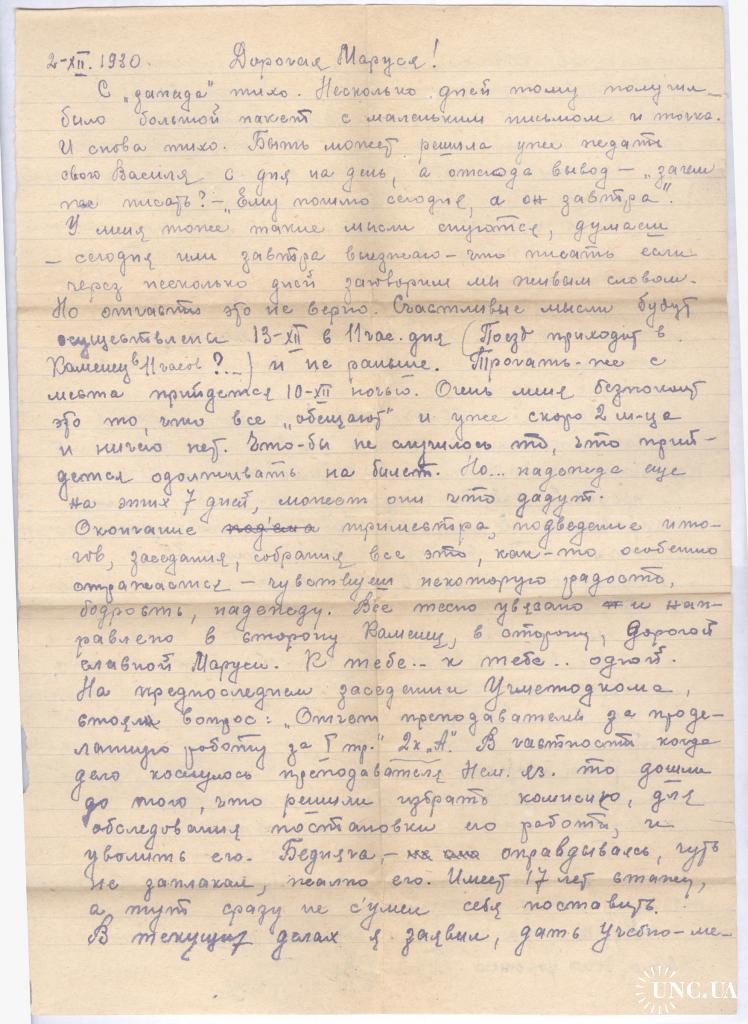 2-XII. 1930. Дорогая Маруся!
С „запада" тихо. Несколько дней тому получил
было большой пакет с маленьким письмом и точка.
И снова тихо. Быть может решила уже ждать
свою Василя с дня на день, а отсюда вывод – „зачем
писать? – „Ему пошлю сегодня, а он завтра".
У меня тоже такие мысли снуются, думаеш
– сегодня или завтра выезжаю – что писать если
через несколько дней заговорим мы живым словом.
Но отчасти это не верно. Счастливые мысли будут
осуществлены 13-XII в 11 час. дня (Поезд приходит в
Каменец в 11 часов?...) и не раньше. Трогать-же с
места прийдется 10-XII ночью. Очень меня безпокоит
это то, что все „обещают" и уже скоро 2 м-ца
и ничего нет. Что-бы не случилось то, что прий-
дется одолживать на билет. Но... надежда еще
на этих 7 дней, может они что дадут.
Окончание триместра, подведение ито-
гов, заседания, собрания все это, как-то особенно
отражается – чувствуеш некоторую радость,
бодрость, надежду. Все тесно увязано и нап-
равлено в сторону Каменец, в сторону, дорогой
славной Маруси. К тебе.. к тебе.. одной.
На предпоследнем заседении Учметодкома,
стоял вопрос: „Отчет преподаватель за проде-
ланную работу за I тр." 2к „А". В частности когда
дело коснулось преподавателя Нем. яз. то дошли
до того, что решили избрать комисию, для
обследования постановки его работы, и
уволить его. Бедняга, – оправдываясь, чуть
не заплакал, жалко его. Имеет 17 лет стажу,
а тут сразу не сумел себя поставить.
В текущих делах я заявил, дать Учебно-ме-
UNC.UA